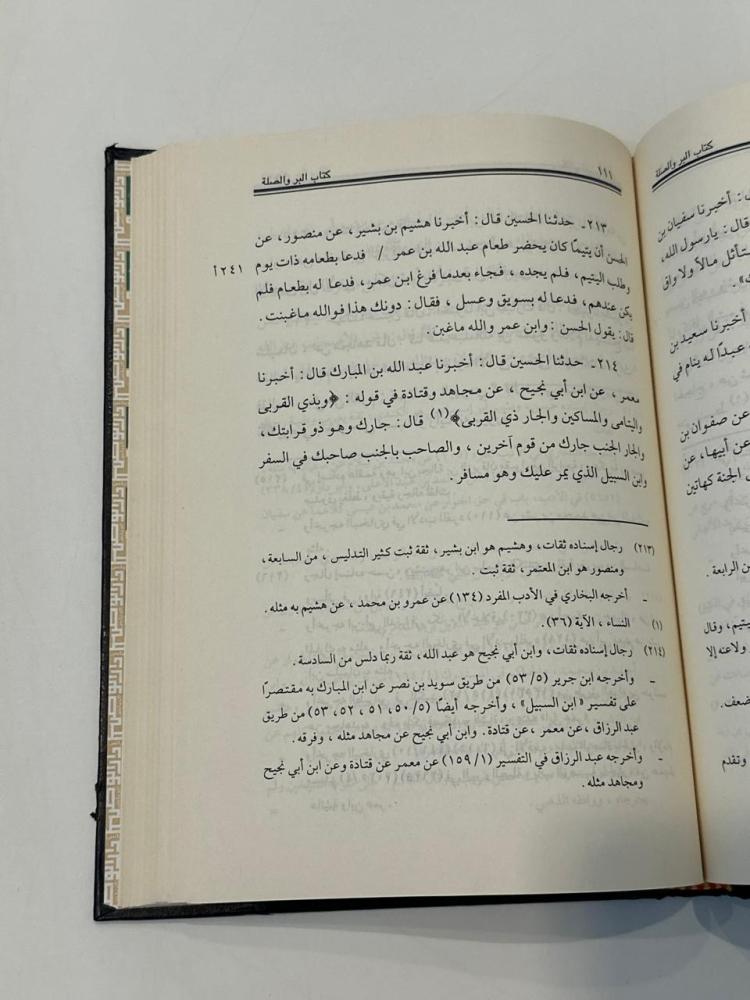 كتاب البر والصلة
أخبرنا سفيان بن
قال : يارسول الله،
متأثل مالاً ولا واق
أخبرنا سعيد بن
عبدًا له ينام في
عن صفوان بن
عن أبيها، عن
الجنة كهاتين
من الرابعة .
يتيم، وقال
ولاعنه إلا
وتقدم
١١١ كتاب البر والصلة
٢١٣ـ حدثنا الحسين قال : أخبرنا هشيم بن بشير ، عن منصور ، عن
الحسن أن يتيمًا كان يحضر طعام عبد الله بن عمر / فدعا بطعامه ذات يوم ٢٤١ أ
وطلب اليتيم ، فلم يجده ، فجاء بعدما فرغ ابن عمر ، فدعا له بطعام فلم
يكن عندهم ، فدعا له بسويق وعسل ، فقال : دونك هذا فوالله ماغبنت .
قال : يقول الحسن : وابن عمر والله ماغبن .
٢١٤ـ حدثنا الحسين قال : أخبرنا عبد الله بن المبارك قال : أخبرنا
معمر ، عن ابن أبي نجيح ، عن مجاهد وقتادة في قوله : ﴿وبذي القربى
واليتامى والمساكين والجار ذي القربى﴾(١) قال : جارك وهو ذو قرابتك ،
والجار الجنب جارك من قوم آخرين ، والصاحب بالجنب صاحبك في السفر
وابن السبيل الذي يمر عليك وهو مسافر .
(٢١٣) رجال إسناده ثقات ، وهشيم هو ابن بشير ، ثقة ثبت كثير التدليس ، من السابعة ،
ومنصور هو ابن المعتمر ، ثقة ثبت .
ـ أخرجه البخاري في الأدب المفرد (١٣٤) عن عمرو بن محمد ، عن هشيم به مثله .
(١) النساء ، الآية (٣٦) .
(٢١٤) رجال إسناده ثقات ، وابن أبي نجيح هو عبد الله ، ثقة ربما دلس من السادسة .
ـ وأخرجه ابن جرير (٥/ ٥٣) من طريق سويد بن نصر عن ابن المبارك به مقتصرًا
على تفسير « ابن السبيل » ، وأخرجه أيضًا (٥/ ٥٠ ، ٥١ ، ٥٢ ، ٥٣) من طريق
عبد الرزاق ، عن معمر ، عن قتادة . وابن أبي نجيح عن مجاهد مثله ، وفرقه .
ـ وأخرجه عبد الرزاق في التفسير (١/ ١٥٩) عن معمر عن قتادة وعن ابن أبي نجيح
ومجاهد مثله .